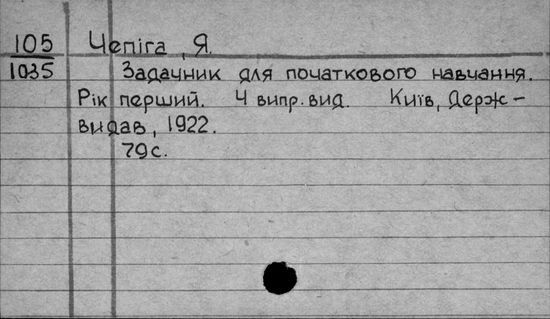 105 Чепіга, Я.
1035 Задачник для початкового навчання.
Рік перший. 4 випр. вид. Київ, Держ-
видав, 1922.
79с.